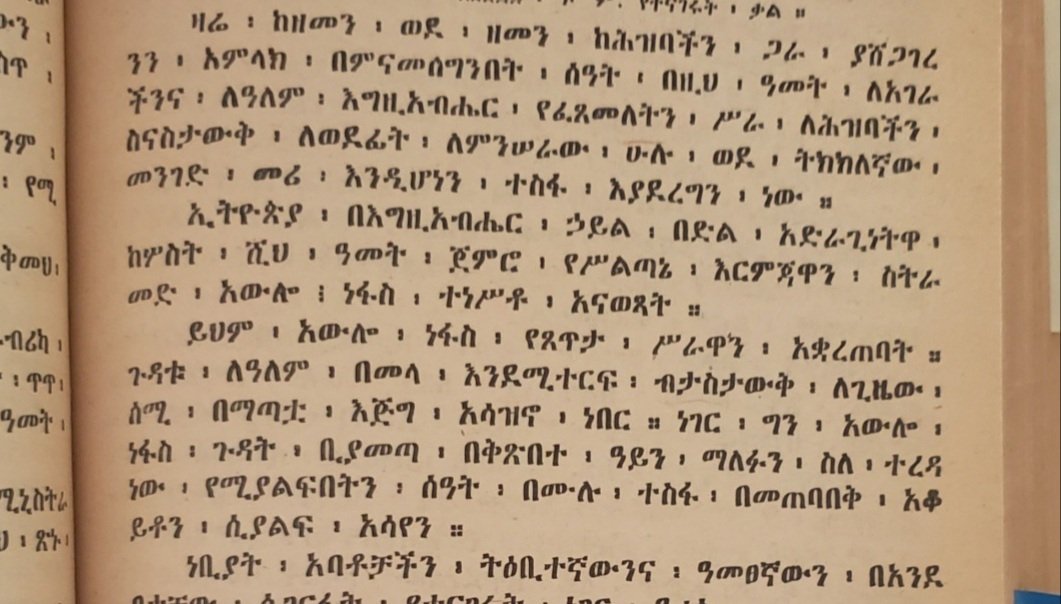 የተናገሩት ፡ ቃል ።
ዛሬ ፡ ከዘመን ፡ ወደ ፡ ዘመን ፡ ከሕዝባችን ፡ ጋራ ፡ ያሸጋገረ
ንን ፡ አምላክ ፡ በምናመሰግንበት ፡ ሰዓት ፡ በዚህ ፡ ዓመት ፡ ለአገራ
ችንና ፡ ለዓለም ፡ እግዚአብሔር ፡ የፈጸመለትን ፡ ሥራ ፡ ለሕዝባችን ፡
ስናስታውቅ ፡ ለወደፊት ፡ ለምንሠራው ፡ ሁሉ ፡ ወደ ፡ ትክክለኛው ፡
መንገድ ፡ መሪ ፡ እንዲሆነን ፡ ተስፋ ፡ እያደረግን ፡ ነው ።
ኢትዮጵያ ፡ በእግዚአብሔር ፡ ኃይል ፡ በድል ፡ አድራጊነትዋ ፡
ከሦስት ፡ ሺህ ፡ ዓመት ፡ ጀምሮ ፡ የሥልጣኔ ፡ እርምጃዋን ፡ ስትራ
መድ ፡ አውሎ ፡ ነፋስ ፡ ተነሥቶ ፡ አናወጻት ።
ይህም ፡ አውሎ ፡ ነፋስ ፡ የጸጥታ ፡ ሥራዋን ፡ አቋረጠባት ።
ጉዳቱ ፡ ለዓለም ፡ በመላ ፡ እንደሚተርፍ ፡ ብታስታውቅ ፡ ለጊዜው ፡
ሰሚ ፡ በማጣቷ ፡ እጅግ ፡ አሳዝኖ ፡ ነበር ። ነገር ፡ ግን ፡ አውሎ ፡
ነፋስ ፡ ጉዳት ፡ ቢያመጣ ፡ በቅጽበተ ፡ ዓይን ፡ ማለፉን ፡ ስለ ፡ ተረዳ
ነው ፡ የሚያልፍበትን ፡ ሰዓት ፡ በሙሉ ፡ ተስፋ ፡ በመጠባበቅ ፡ አቆ
ይቶን ፡ ሲያልፍ ፡ አሳየን ።
ነቢያት ፡ አባቶቻችን ፡ ትዕቢተኛውንና ፡ ዓመፀኛውን ፡ በአንደ